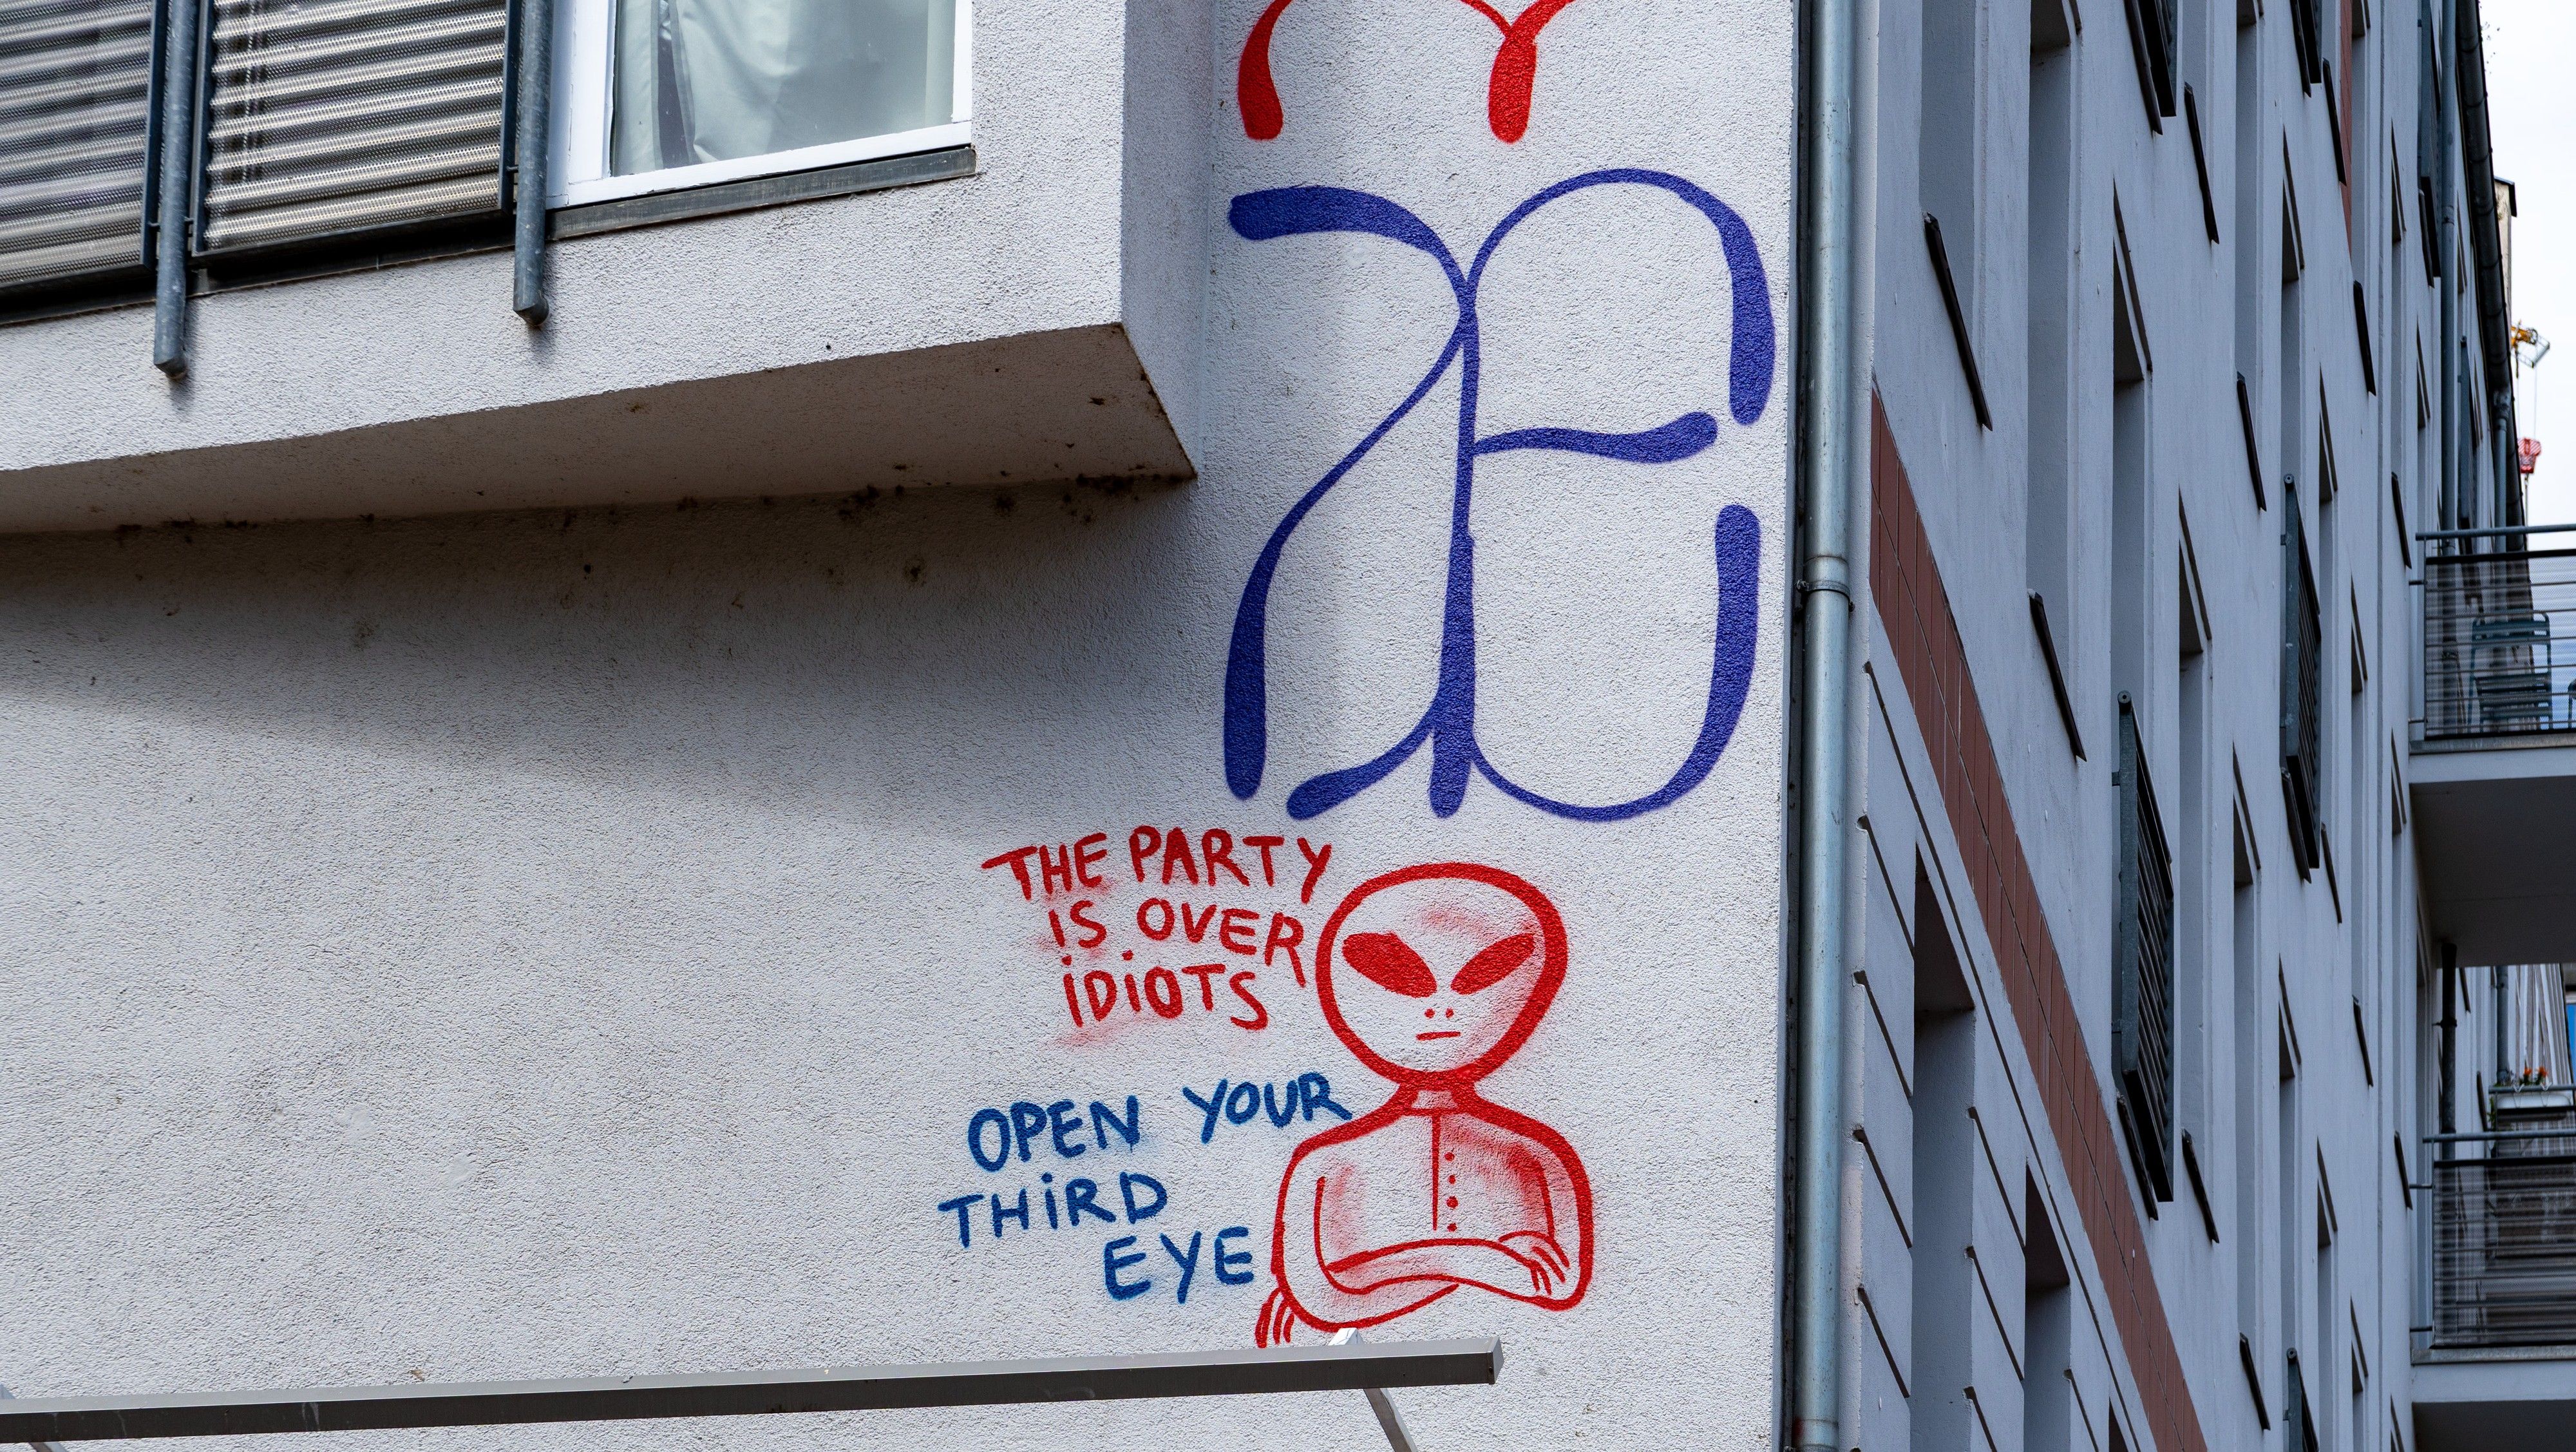 THE PARTY
IS OVER
iDiOTS
OPEN YOUR
THiRD
EYE